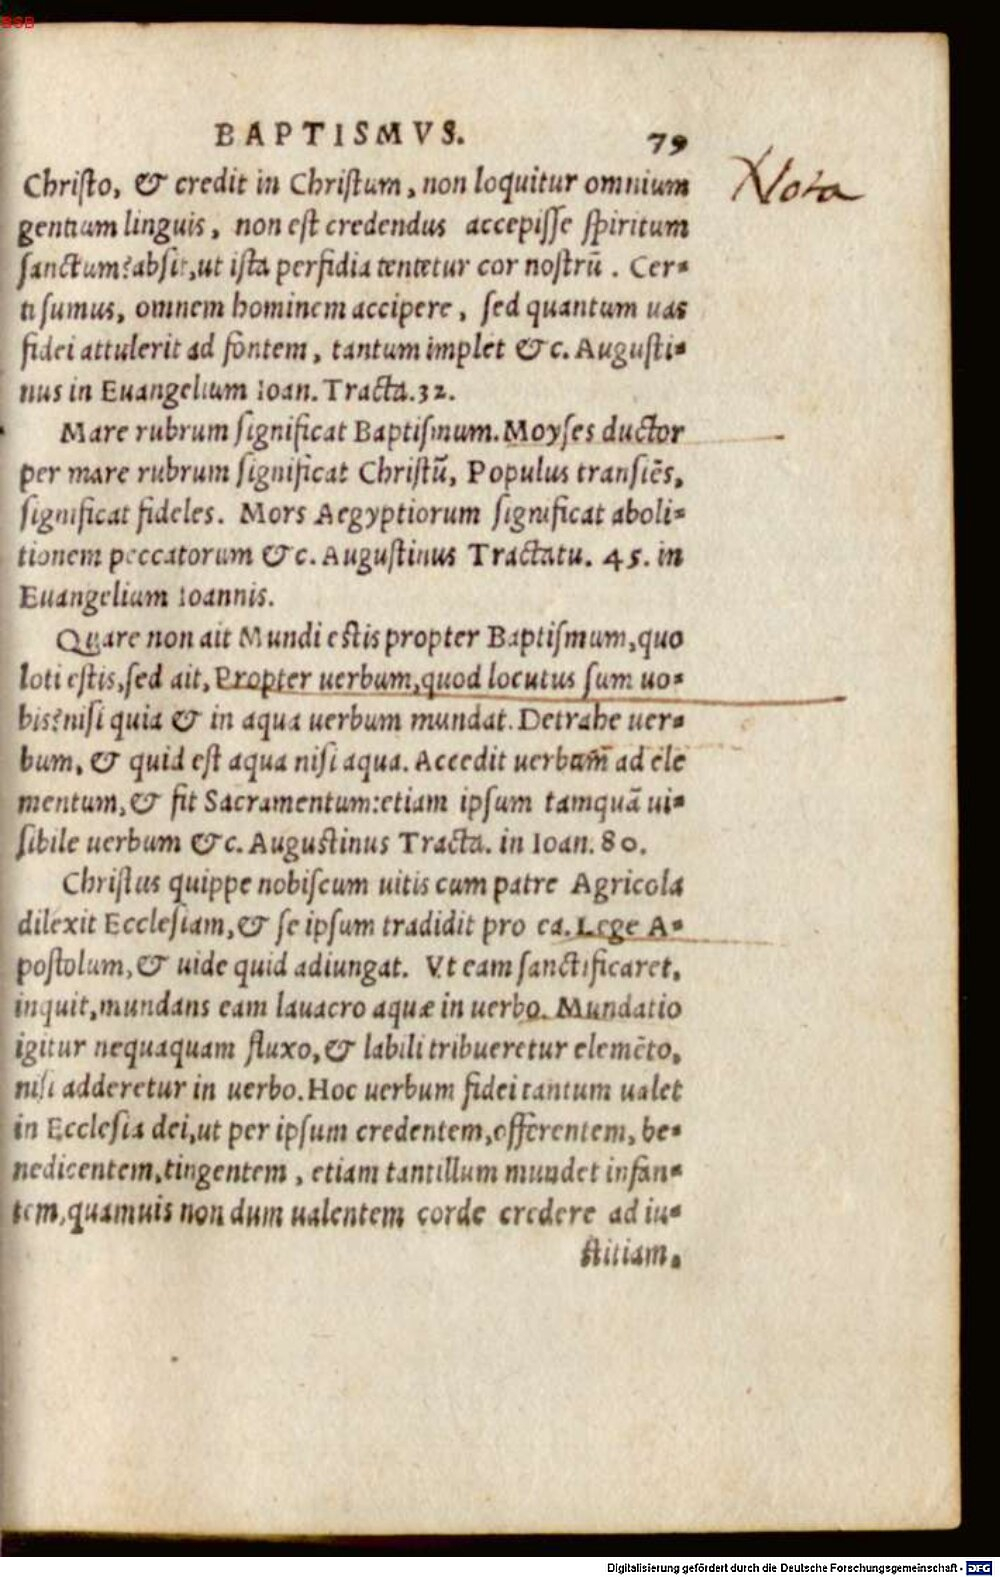 BSB
BAPTISMVS. 79
Nota
Chriſto, & credit in Chriſtum, non loquitur omnium
gentium linguis, non eſt credendus accepiſſe ſpiritum
ſanctum? abſit, ut iſta perfidia tentetur cor noſtrũ. Cer⸗
ti ſumus, omnem hominem accipere, ſed quantum uas
fidei attulerit ad fontem, tantum implet &c. Auguſti⸗
nus in Euangelium Ioan. Tracta. 32.
Mare rubrum ſignificat Baptiſmum. Moyſes ductor
per mare rubrum ſignificat Chriſtũ, Populus tranſiẽs,
ſignificat fideles. Mors Aegyptiorum ſignificat aboli⸗
tionem peccatorum &c. Auguſtinus Tractatu. 45. in
Euangelium Ioannis.
Quare non ait Mundi eſtis propter Baptiſmum, quo
loti eſtis, ſed ait, Propter uerbum, quod locutus ſum uo⸗
bis? niſi quia & in aqua uerbum mundat. Detrahe uer⸗
bum, & quid eſt aqua niſi aqua. Accedit uerbum ad ele
mentum, & fit Sacramentum: etiam ipſum tamquã ui⸗
ſibile uerbum &c. Auguſtinus Tracta. in Ioan. 80.
Chriſtus quippe nobiſcum uitis cum patre Agricola
dilexit Eccleſiam, & ſe ipſum tradidit pro ea. Lege A⸗
poſtolum, & uide quid adiungat. Vt eam ſanctificaret,
inquit, mundans eam lauacro aquæ in uerbo. Mundatio
igitur nequaquam fluxo, & labili tribueretur elemẽto,
niſi adderetur in uerbo. Hoc uerbum fidei tantum ualet
in Eccleſia dei, ut per ipſum credentem, offerentem, be⸗
nedicentem, tingentem, etiam tantillum mundet infan⸗
tem, quamuis non dum ualentem corde credere ad iu⸗
ſtitiam.
Digitalisierung gefördert durch die Deutsche Forschungsgemeinschaft - DFG